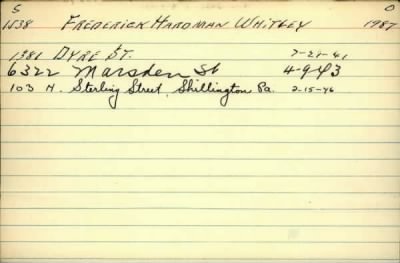 S O
1538 FREDERICK HARDMAN WHITLEY 1987
1381 DYRE ST. 7-28-41
6322 Marsden St 4-9-43
103 N. Sterling Street, Shillington Pa. 2-15-46